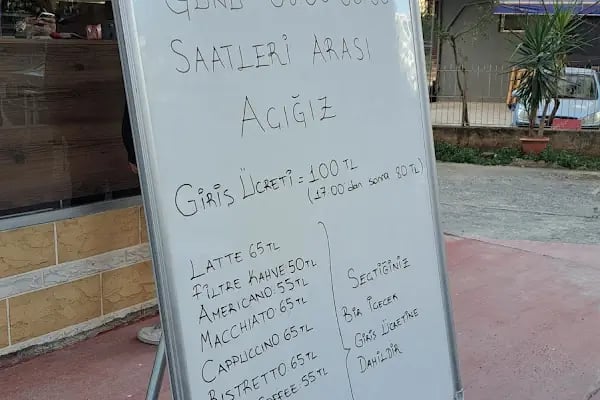 SAATLERİ ARASI
AÇIĞIZ
GİRİS ÜCRETİ = 100 TL
(17.00'dan sonra 80 TL)
LATTE 65 TL
FİLTRE KAHVE 50 TL
AMERICANO 55 TL
MACCHIATO 65 TL
CAPPUCCINO 65 TL
RISTRETTO 65 TL
COFFEE 55 TL
SEÇTİĞİNİZ
BİR İÇECEK
GİRİS ÜCRETİNE
DAHİLDİR